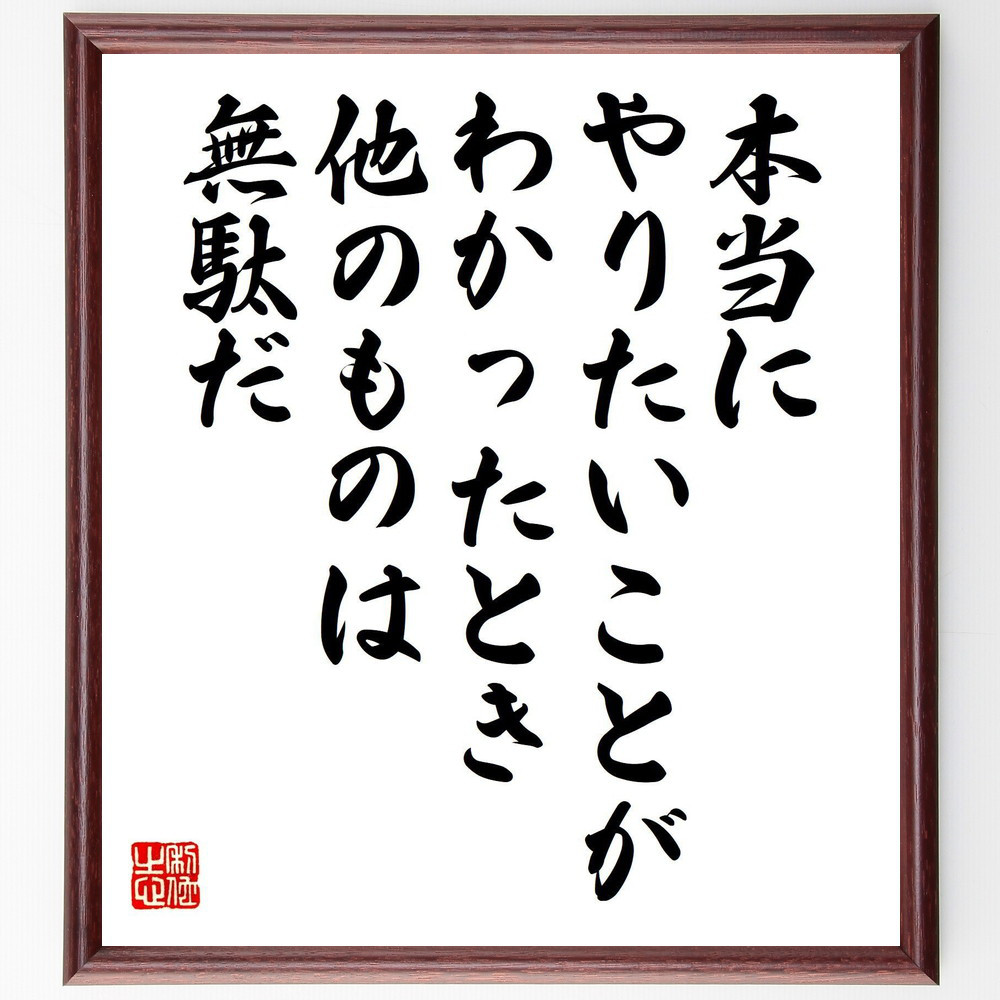 本当に
やりたいことが
わかったとき
他のものは
無駄だ